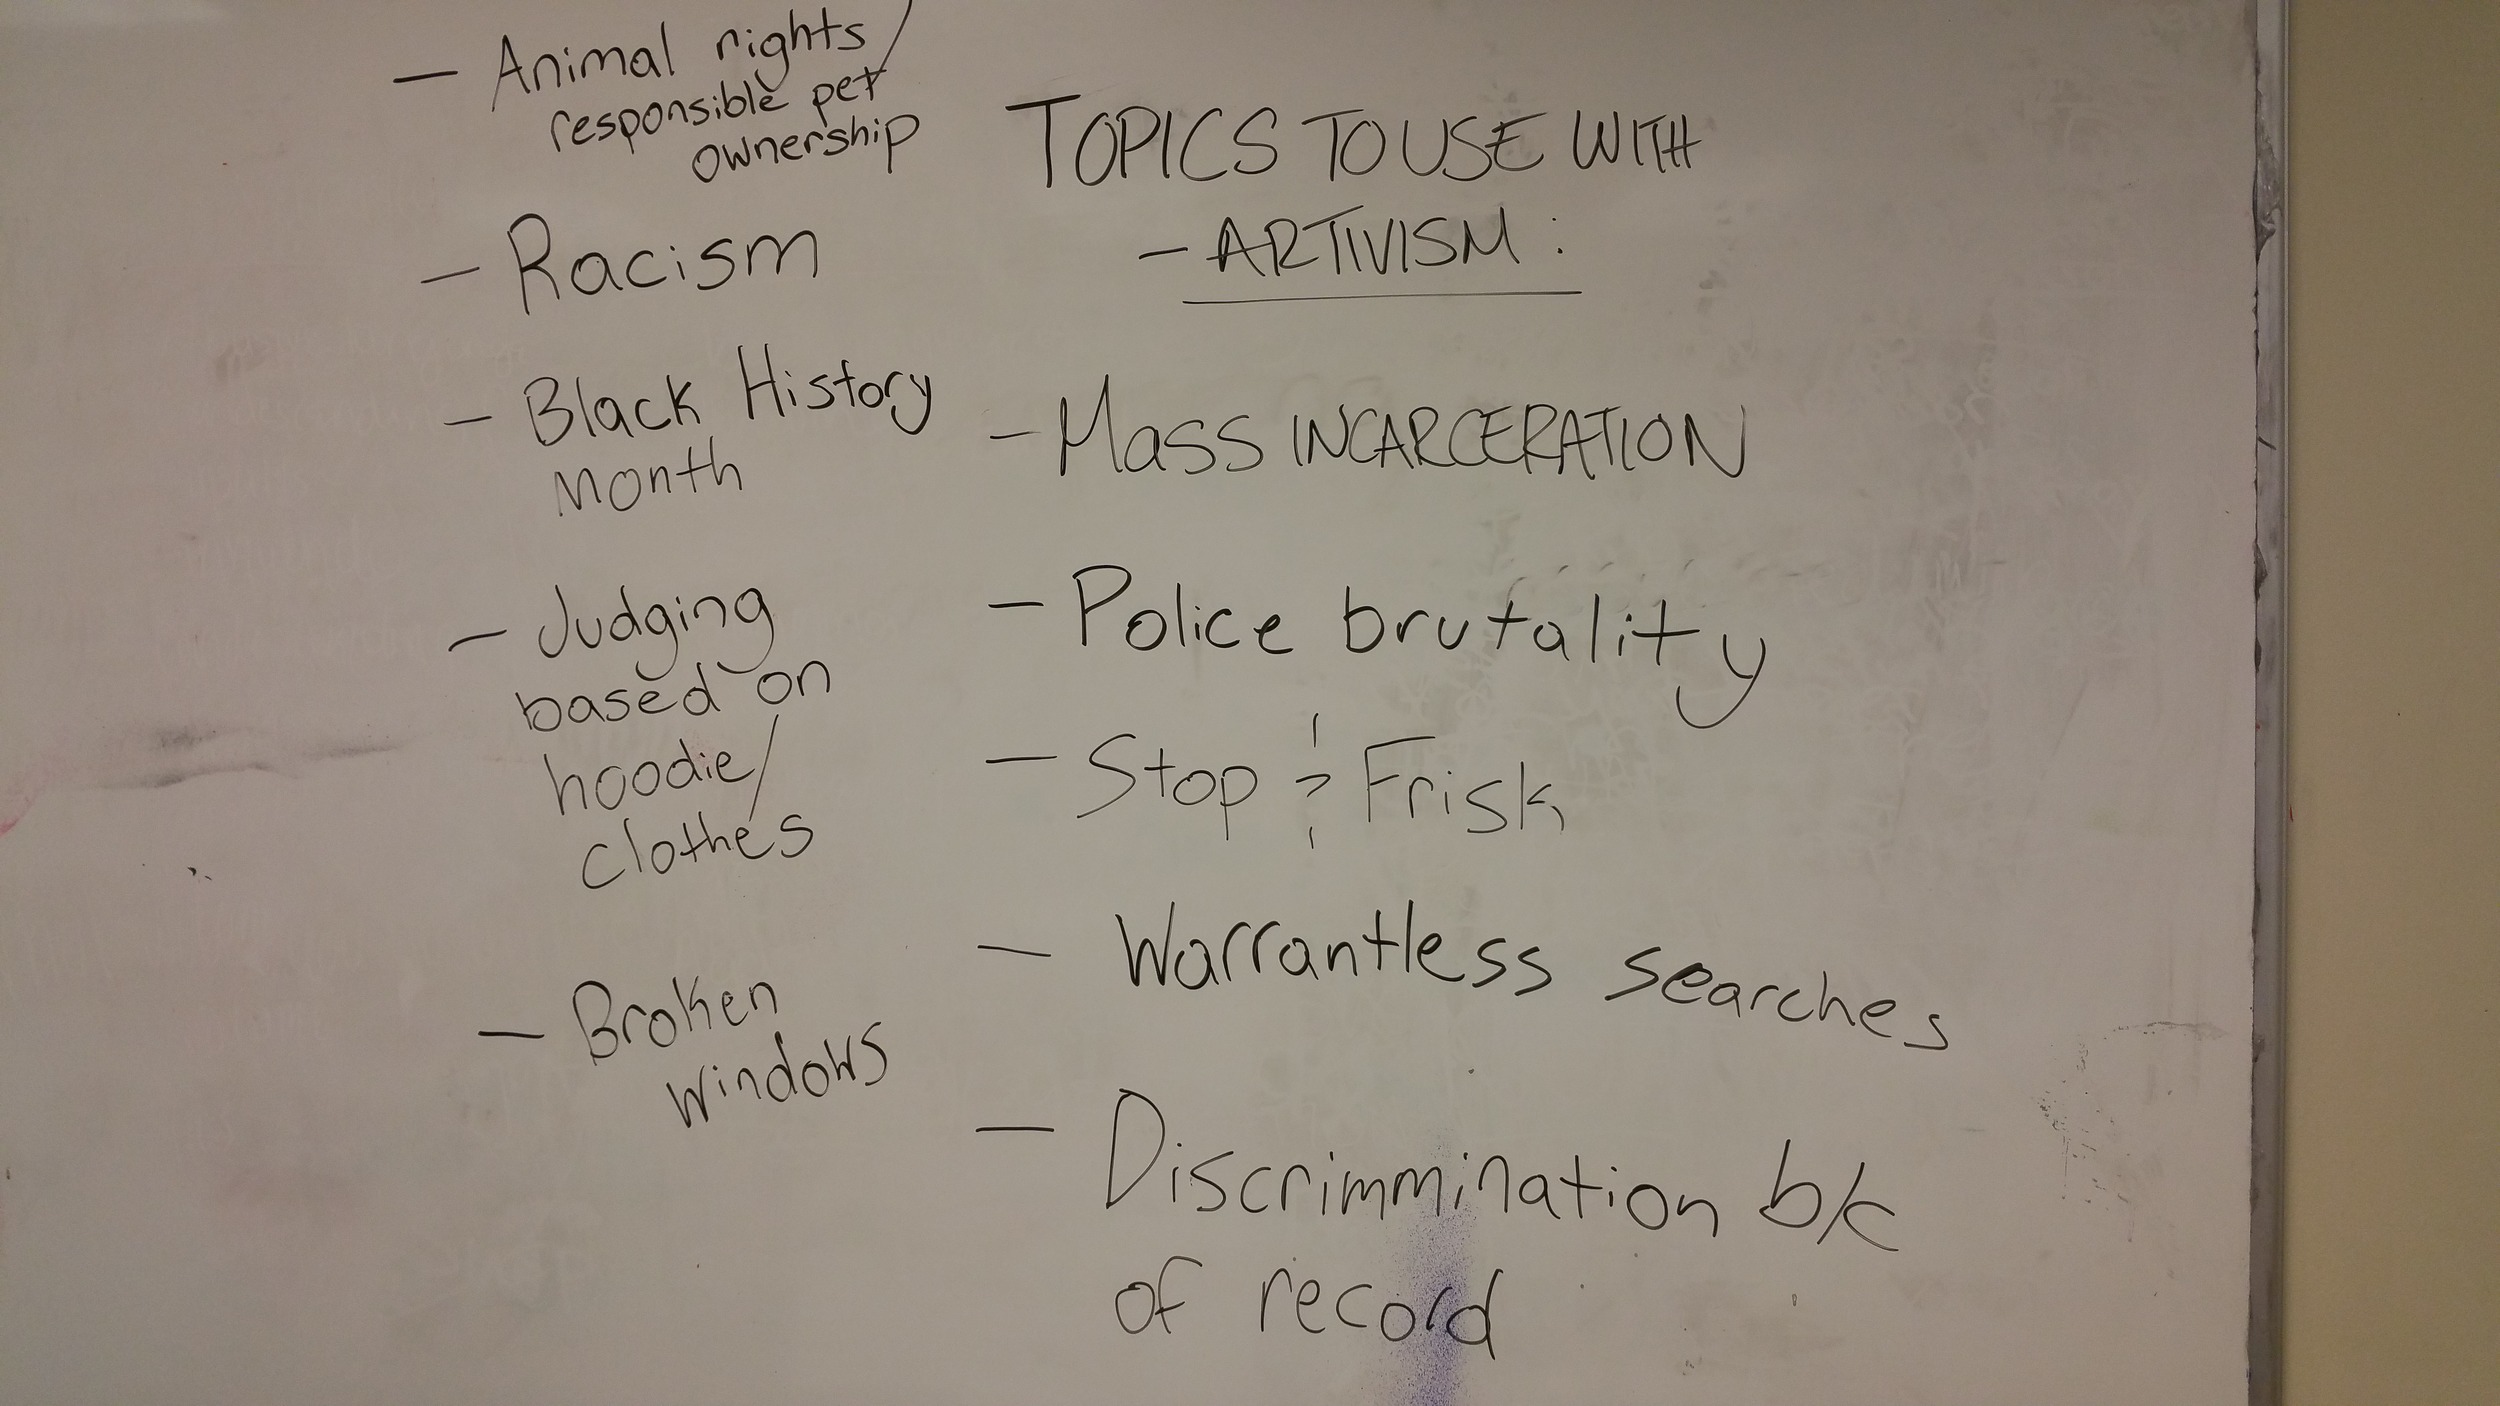 TOPICS TO USE WITH
- ARTIVISM:
- Mass INCARCERATION
- Police brutality
- Stop & Frisk
- Warrantless searches
- Discrimmination b/c
of record
- Animal rights/
responsible pet
ownership
- Racism
- Black History
Month
- Judging
based on
hoodie/
clothes
- Broken
windows